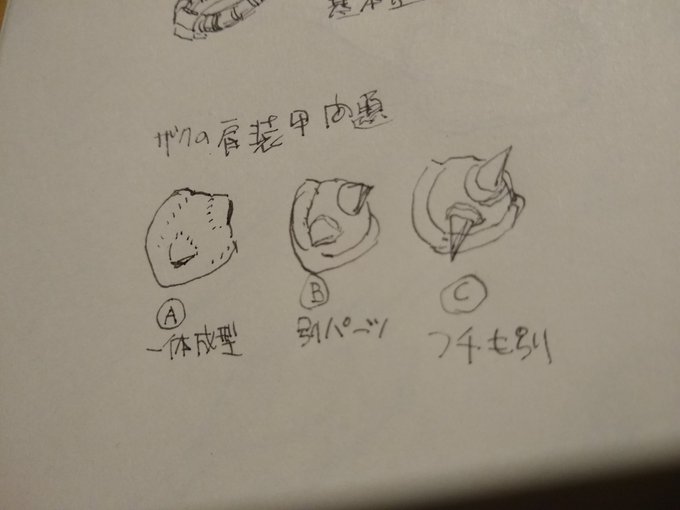 基本
ザクの肩装甲問題
A
B
C
一体成型
別パーツ
フチも別